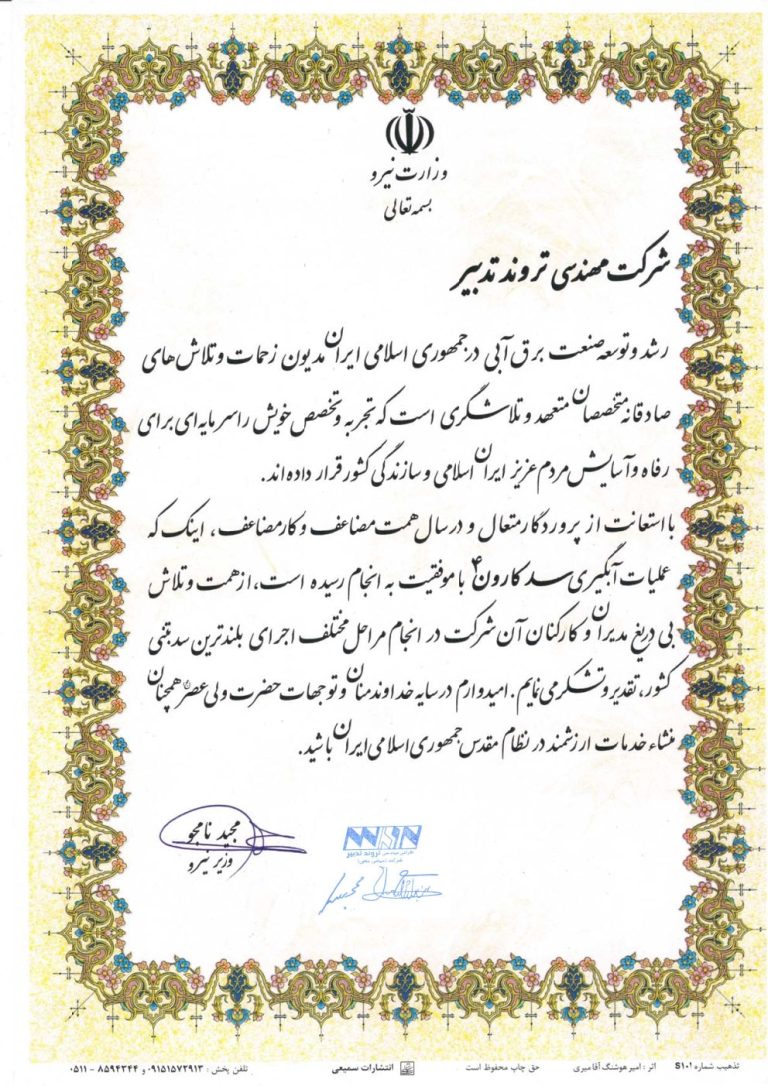 وزارت نیرو
بسمه تعالی
شرکت مهندسی تروند تدبیر
رشد و توسعه صنعت برق آبی در جمهوری اسلامی ایران مدیون زحمات و تلاش های
صادقانه متخصصان متعهد و تلاشگری است که تجربه و تخصص خویش را سرمایه ای برای
رفاه و آسایش مردم عزیز ایران اسلامی و سازندگی کشور قرار داده اند.
با استعانت از پروردگار متعال و در سال همت مضاعف و کار مضاعف، اینک که
عملیات آبگیری سد کارون ۴ با موفقیت به انجام رسیده است، از همت و تلاش
بی دریغ مدیران و کارکنان آن شرکت در انجام مراحل مختلف اجرای بلندترین سد بتنی
کشور، تقدیر و تشکر می نمایم. امیدوارم در سایه خداوند منان و توجهات حضرت ولی عصر همچنان
منشاء خدمات ارزشمند در نظام مقدس جمهوری اسلامی ایران باشید.
مجید نامجو
وزیر نیرو
تروند تدبیر
تذهیب شماره S۱۰۱
اثر : امیر هوشنگ آقامیری
حق چاپ محفوظ است
انتشارات سمیعی
تلفن پخش : ۰۹۱۵۱۵۷۲۹۱۳ و ۸۵۹۴۳۴۴ - ۰۵۱۱